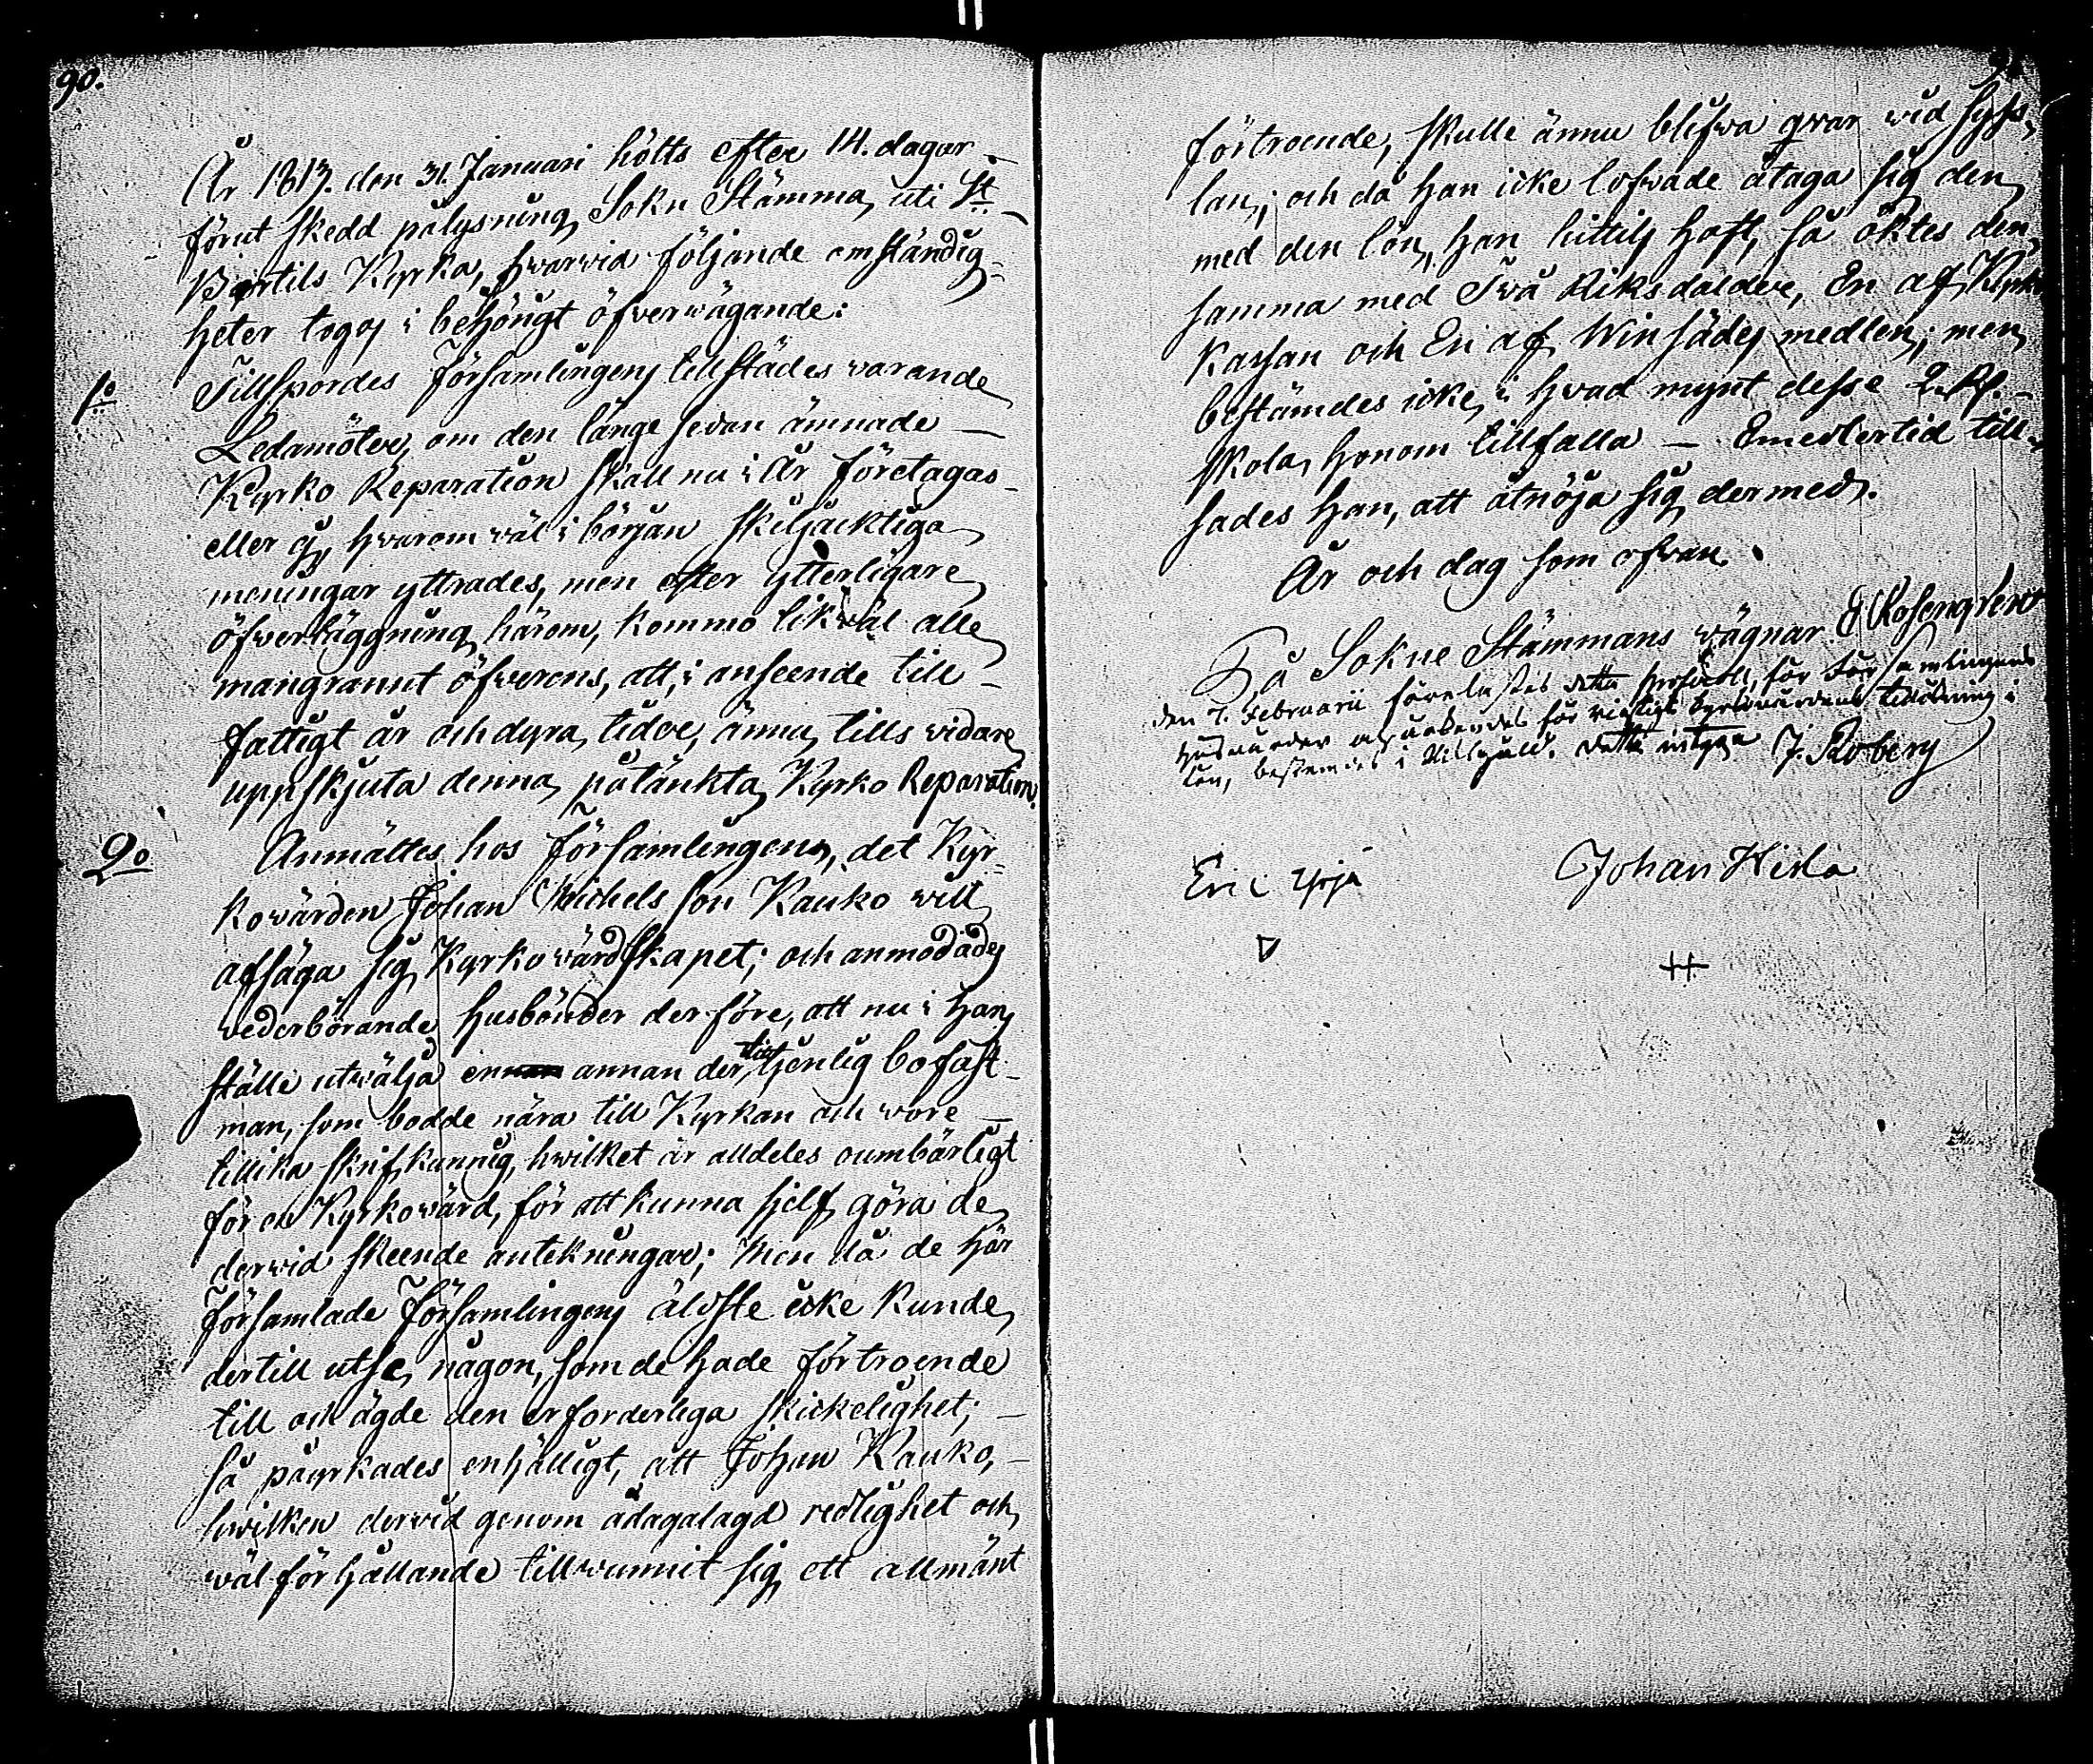 90.
År 1813. den 31. Januari hölts efter 14. dagar
förut skedd pålysning, Sokn Stämma, uti St.
Bertils Kyrka, hvarvid följande omständig-
heter togos i behörigt öfvervägande:
1o
Tillspordes Församlingens tillstädes varande
Ledamöter, om den länge sedan ämnade
Kyrko Reparation skall nu i År företagas
eller ej, hvarom väl i början skiljacktiga
meningar yttrades, men efter ytterligare
öfverläggning härom, kommo likväl alle
mangrannt öfverens, att, i anseende till
fattigt år och dyra tider, ännu tills vidare
uppskjuta denna påtänkta Kyrko Reparation.
2o
Anmältes hos Församlingen, det Kyr-
kovärden Johan Michels son Kauko vill
afsäga sig Kyrkovärdskapet; och anmodades
vederbörande Husbönder derföre, att nu i hans
ställe utvälja en annan der till tjenlig bofast
man, som bodde nära till Kyrkan och vore
tillika skrifkunnig, hvilket är alldeles oumbärligt
för en Kyrkovärd, för att kunna sjelf göra de
dervid skeende antekningar; Men då de här
församlade Församlingens äldste icke kunde
dertill utse någon, som de hade förtroende
till och ägde den erforderliga skickelighet;
så påyrkades enhälligt, att Johan Kauko,
hvilken dervid genom ådagalagd redlighet och
välförhållande tillvunnit sig ett allmänt
förtroende, skulle ännu blifva qvar vid syss-
lan; och då han icke lofvade åtaga sig den
med den lön, han hittils haft, så öktes den
samma med Två Riksdaler, En af Kyrko
Kassan och En af Winsädes medlen; men
bestämdes icke, i hvad mynt desse 2. Rd.
skola honom tillfalla — Emedlertid till-
sades han, att åtnöja sig dermed.
År och dag som ofvan.
På Sokne Stämmans vägnar E Rosengren
den 7. Februarii förelästes detta protocoll, för Församlingens
Husvärder och erkändes för riktigt Kyrkovärdens tillökning i
lön, bestämdes i Riksgäld. detta intyga J. Roberg
Eric Yrjä
Johan Hisla